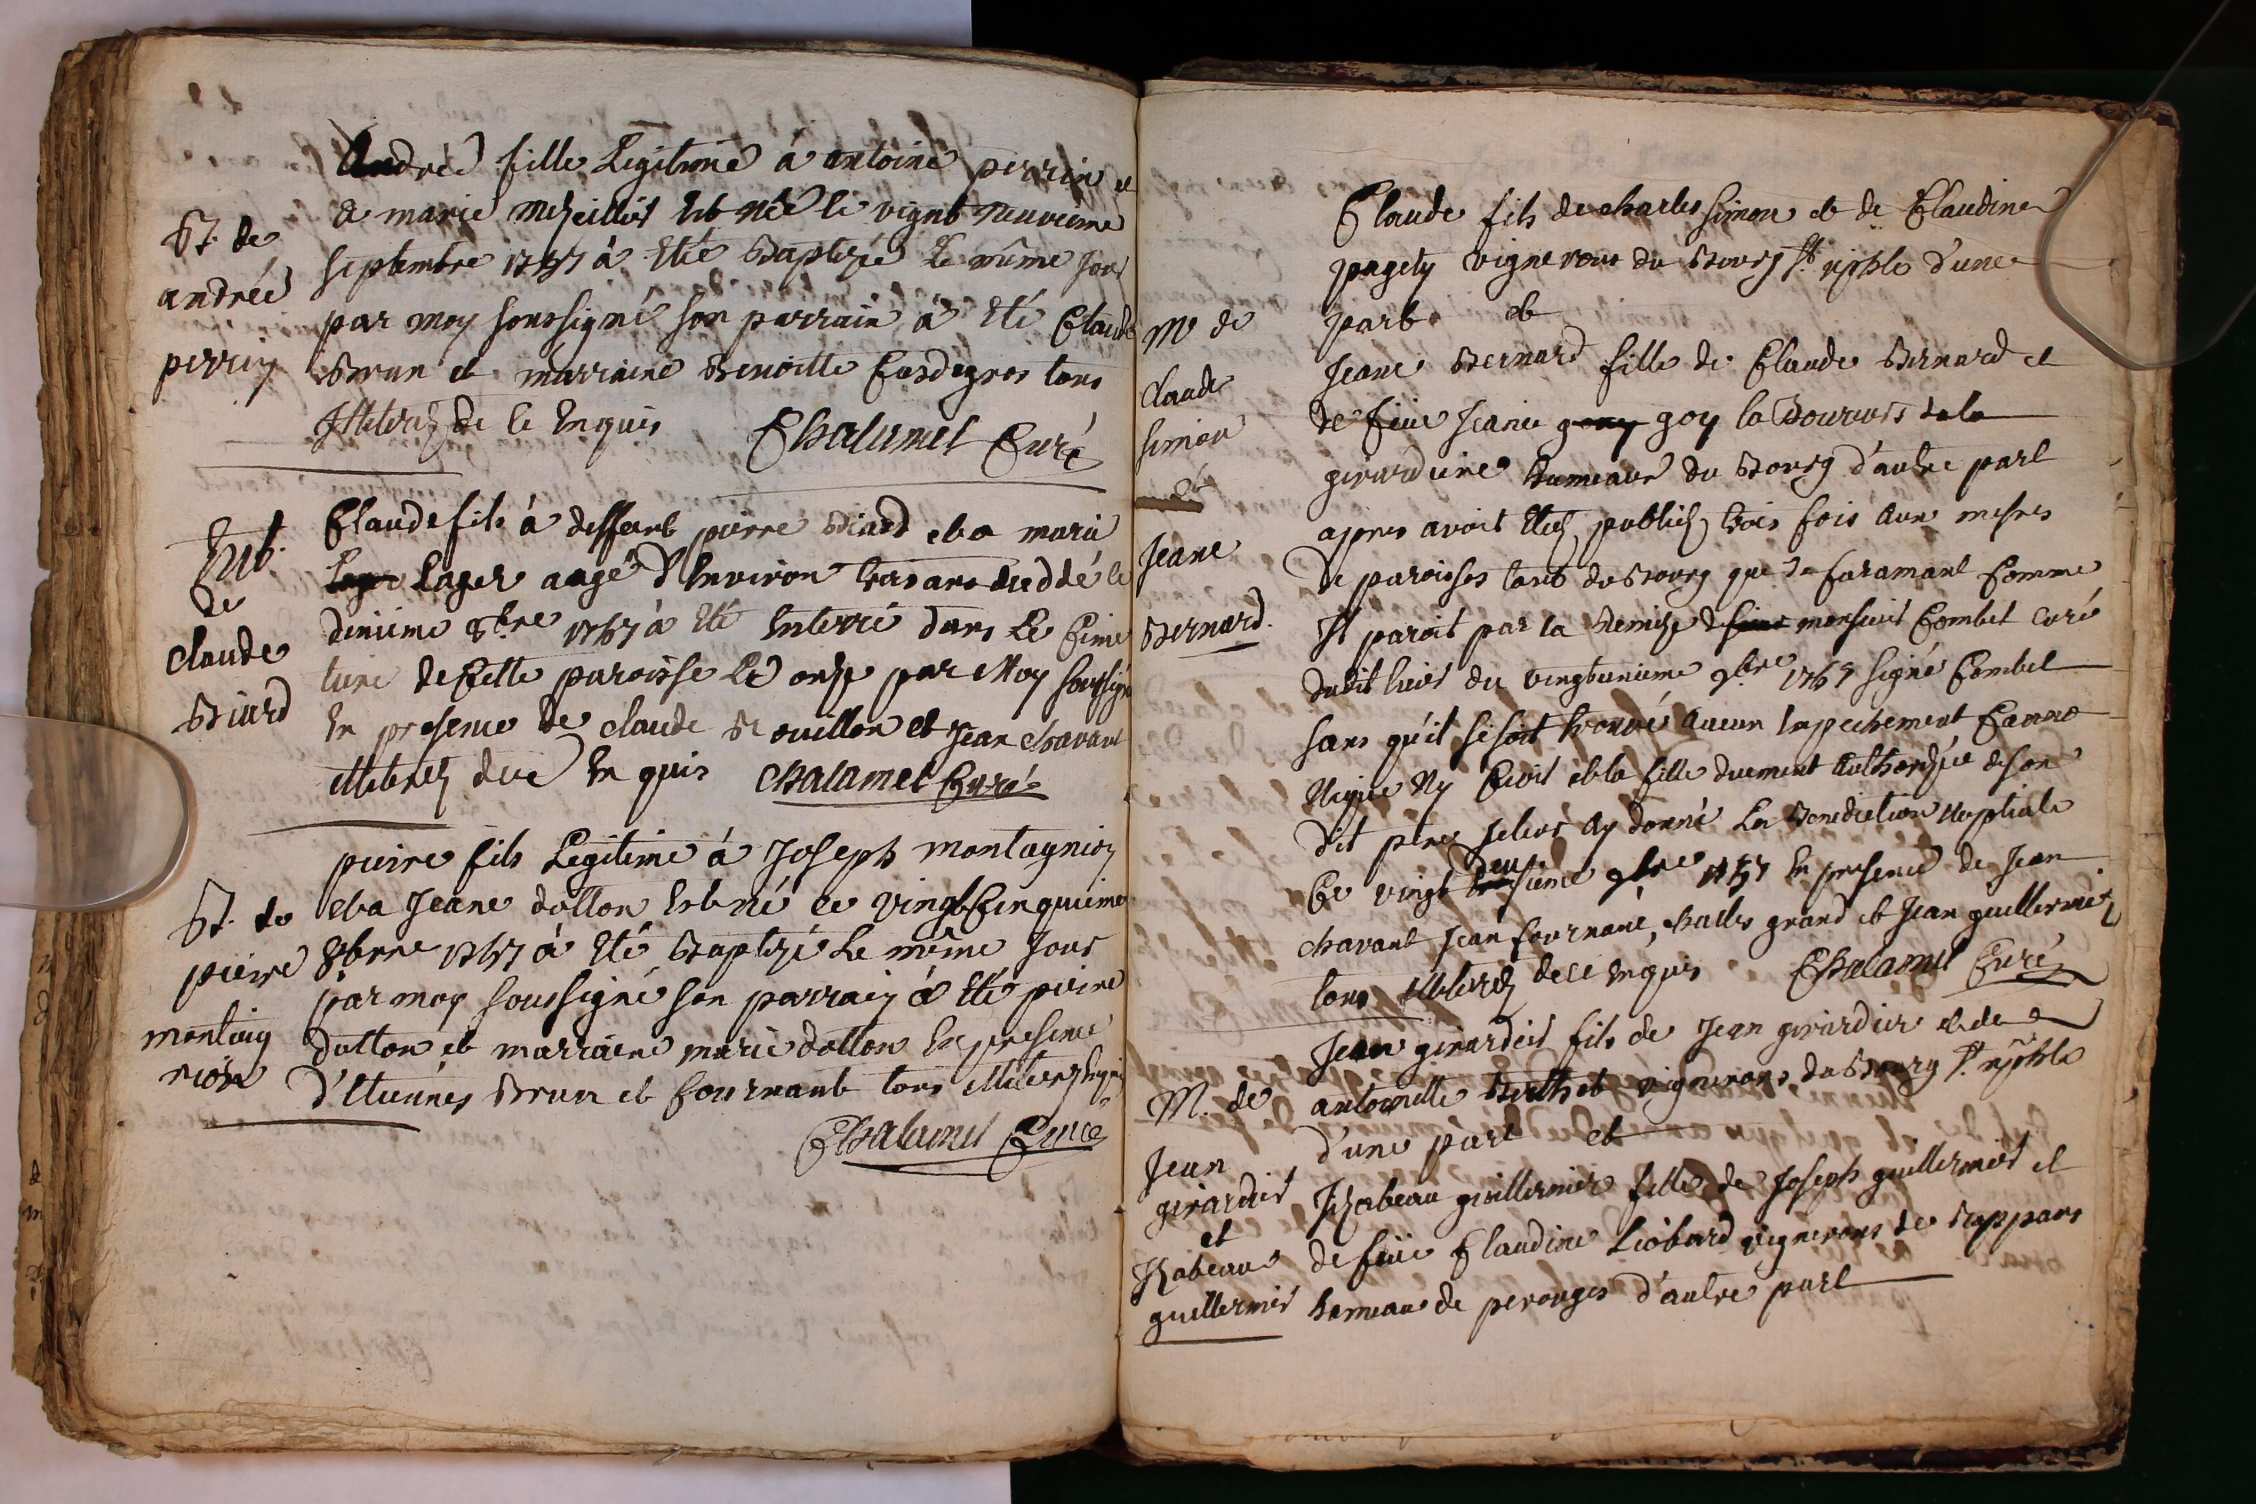 Andréé fille Legitime á antoine perrin et
a marie mezeillier Est née le vignt neuvieme
Bt. de
andréé
perrin
septembre 1767 á Eté Baptizée Le même Jour
par moy soussigné son parrain á Eté Claude
Brun et marraine Benoitte Cusdegros tous
Illeterez de ce Enquis Chalamel Curé
Ent.
de
claude
Biard
Claude fils á deffunt pierre Biard et a marie
Lager aagé d'Environ trois ans decedé le
dixieme 8bre 1767 á Eté Enterré dans Le Cime
tiere de Cette paroisse Le onze par Moy soussigné
En presence de claude Rouillon et Jean chavant
illeterez de ce Enquis chalamel Curé
Bt. de
pierre
montaig
nion
pierre fils Legitime á Joseph montagnion
et a Jeane dutton Est né ce vingt Cinquieme
8bre 1767 á Eté Baptizé Le même Jour
par moy soussigné son parrain á Eté pierre
dutton et marraine marie dutton En presence
d'Etiennes Brun et fournant tous illeterez Enquis
Chalamel Curé
Me de
claude
simon
et
Jeane
Bernard
Claude fils de charles simon et de Claudine
pagety vigneron du Bourg St. xpble d'une
part et
Jeane Bernard fille de Claude Bernard et
de feüe Jeane goy la Bouvois de la
girardiere hameaux du Bourg d'autre part
apres avoir Etez publiez trois fois aux messes
de paroisses tant du Bourg que de faramant Comme
Il paroit par la Remize de monsieur Combet curé
dudit lieus du vingtunieme 9bre 1767 signé Combet
sans qu'il si soit trouvé aucun Empechement Canno
nique Ny Civil et la fille duement authorizée de son
dit pere Je leur ay donné La Benediction Nuptiale
Ce vingt deuxieme 9bre 1767 En presence de Jean
chavant Jean fournant, challes grand et Jean guillermier
tous illeterez de ce Enquis Chalamel Curé
M. de
Jean
girardier
et
Izabeaue
guillermier
Jean girardeis fils de Jean girardier et de
antoinette Berthet vignerons du Bourg St. xpble
d'une part et
Izabeau guillermier fille de Joseph guillermier et
de feüe Claudine Liobard vignerons de Rappans
hameaux de perouges d'autre part